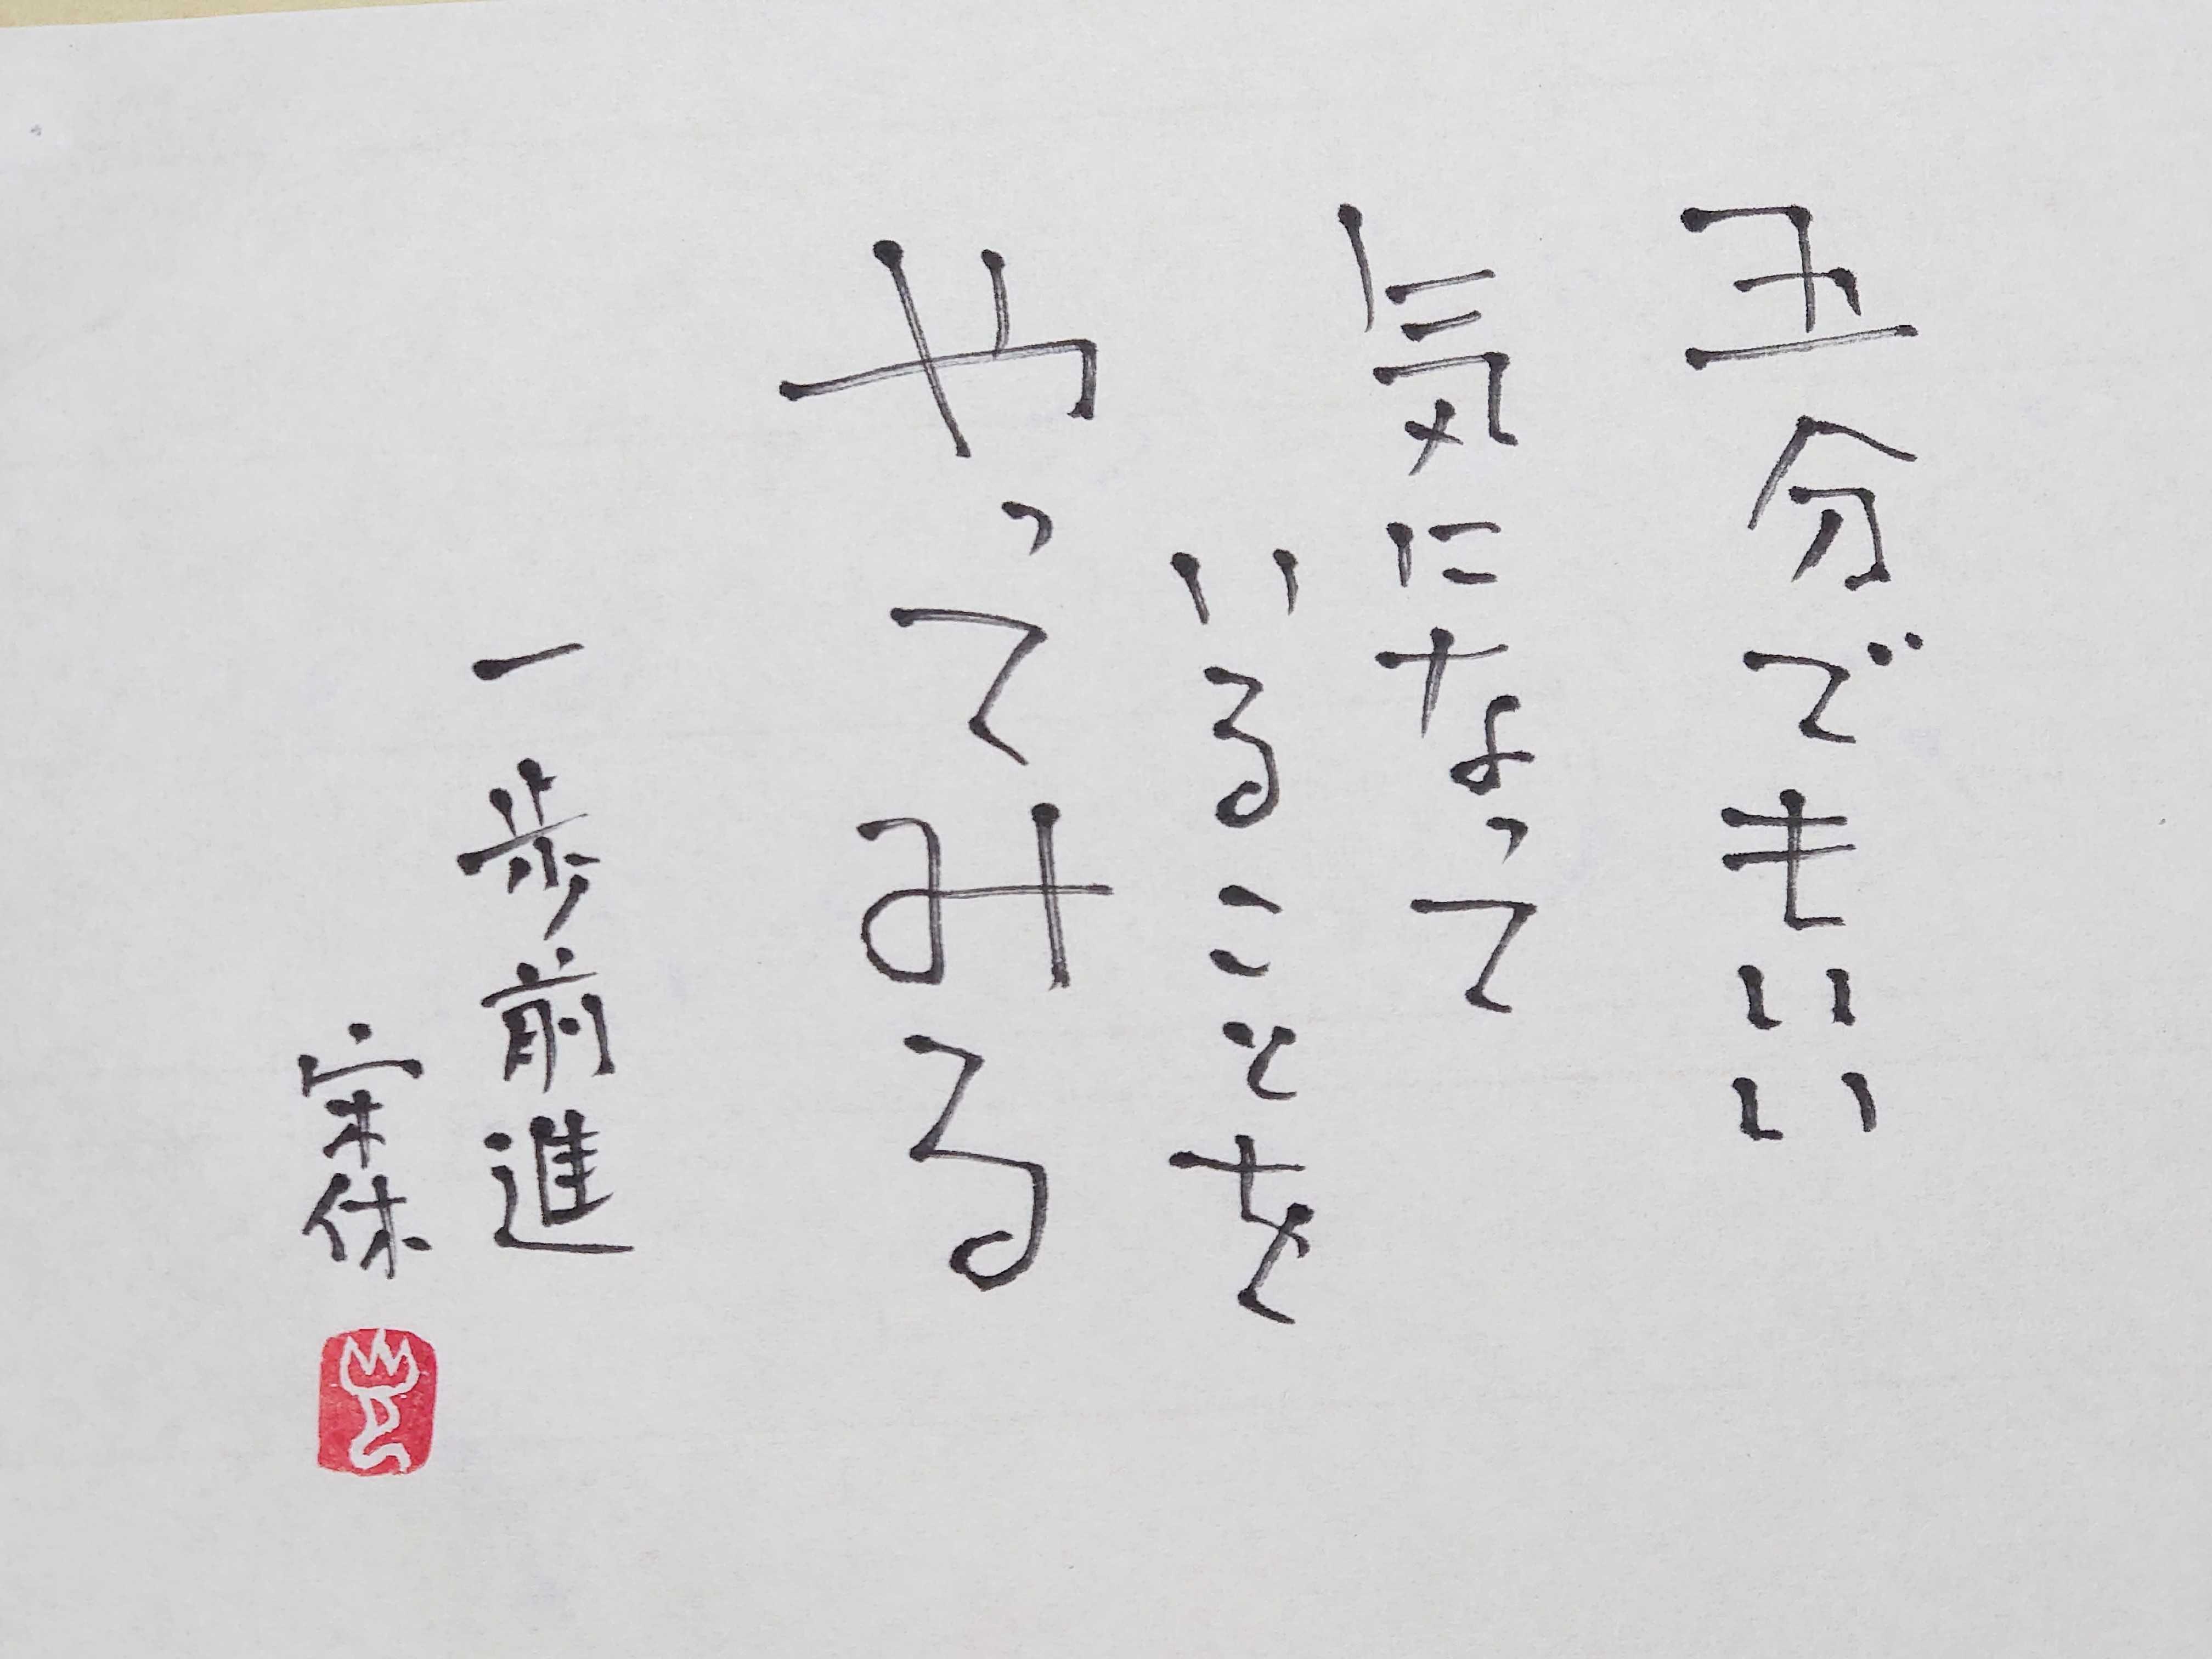 五分でもいい
気になって
いることを
やってみる
一歩前進
宗休